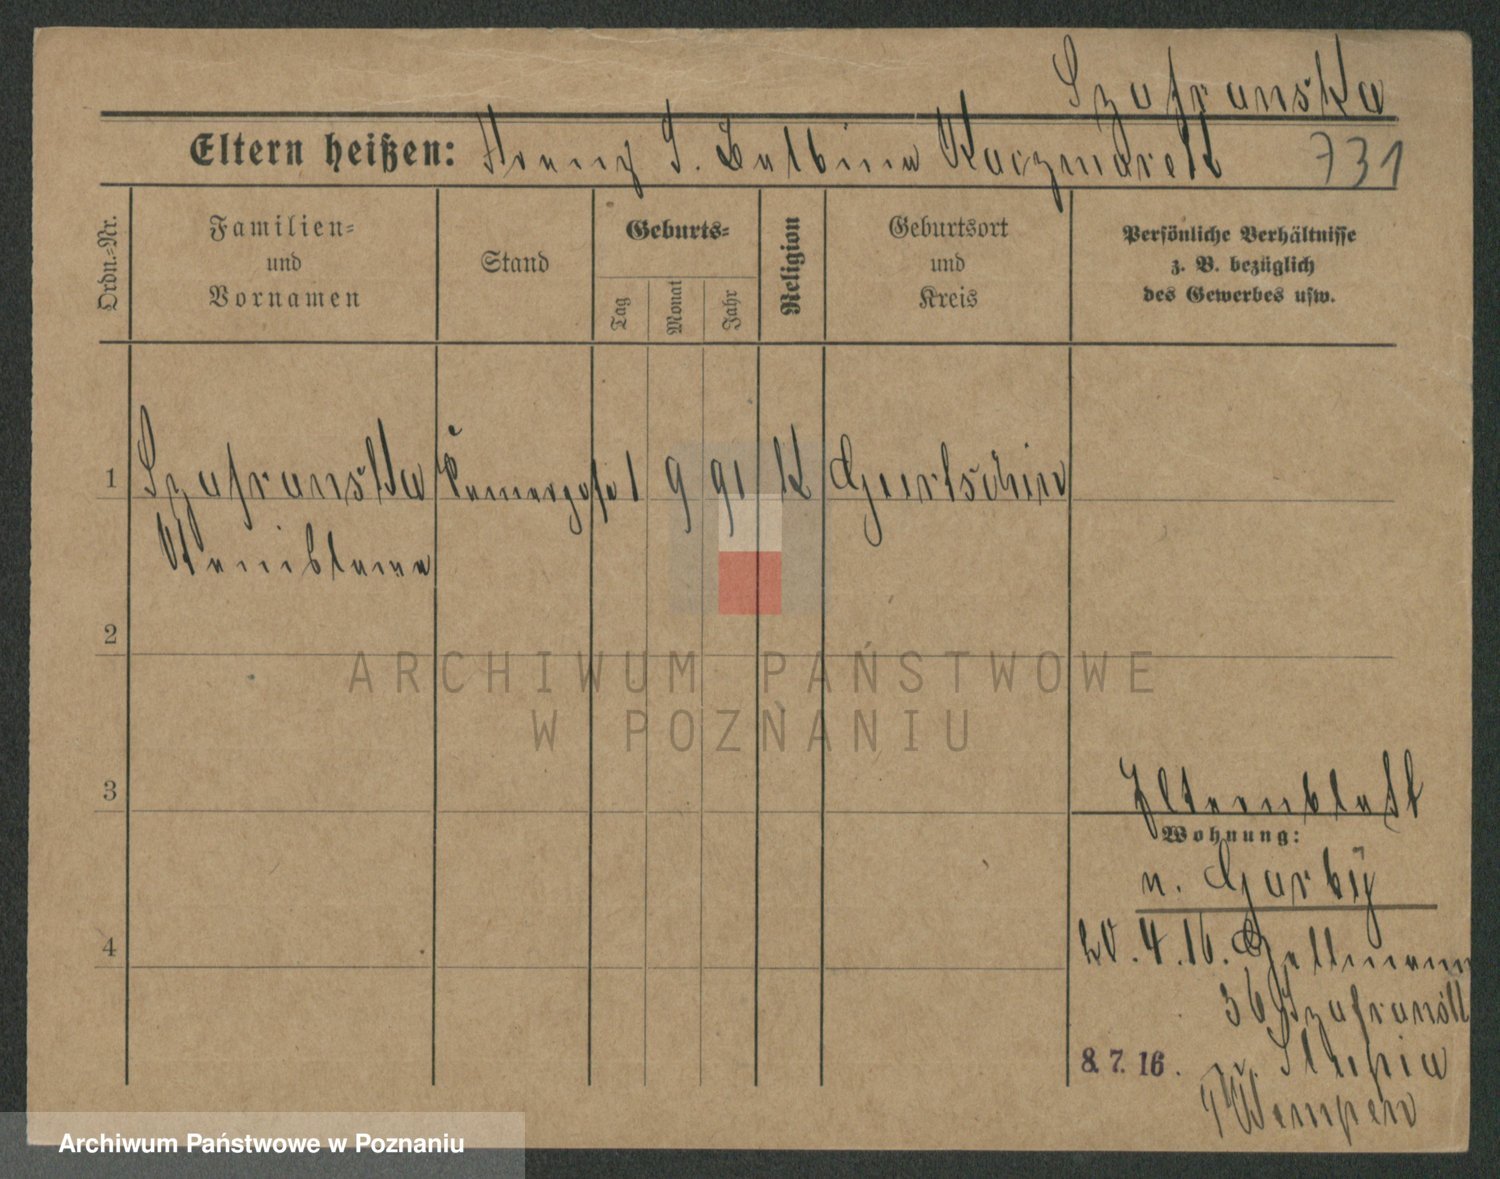 Szafranska
Eltern heißen: Franz S. Balbina Kaczmarek 731
Ordn.-Nr.
Familien-
und
Vornamen
Stand
Geburts-
Tag
Monat
Jahr
Religion
Geburtsort
und
Kreis
Persönliche Verhältnisse
z. B. bezüglich
des Gewerbes usw.
1 Szafranska 1 9 91 K Gurtschin
Stanislawa
2
ARCHIWUM PAŃSTWOWE
W POZNANIU
3
Elternblatt
Wohnung:
n. Garby
4
20.4.16.
36 Szafranski
8.7.16. Slupia
Kempen
Archiwum Państwowe w Poznaniu